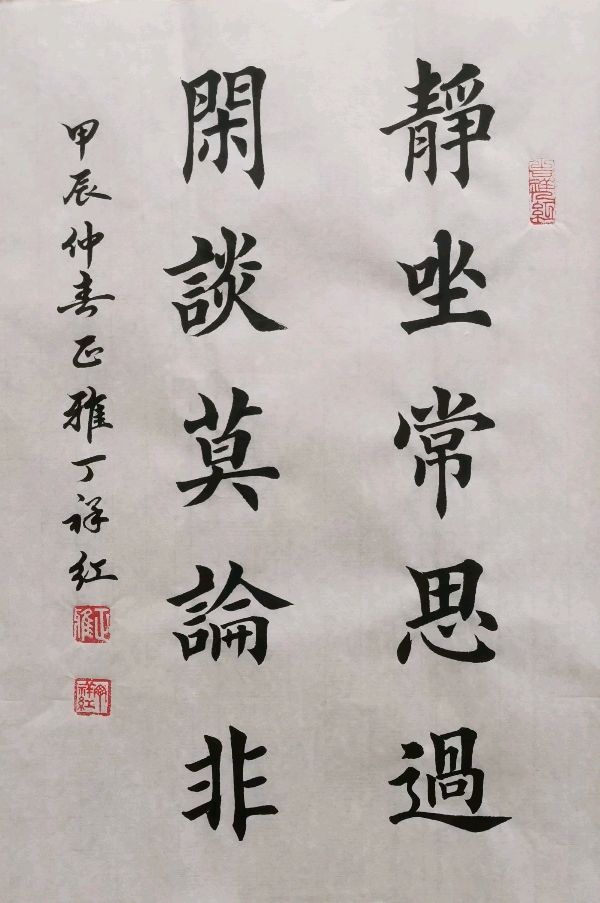 靜坐常思過
閑談莫論非
甲辰仲春正雅丁祥红
正雅